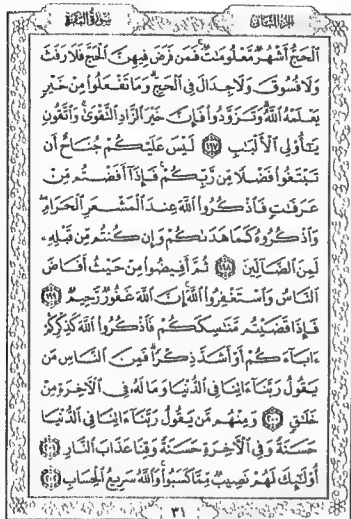 الجزء الثاني
سورة البقرة
ٱلْحَجُّ أَشْهُرٌ مَّعْلُومَـٰتٌ ۚ فَمَن فَرَضَ فِيهِنَّ ٱلْحَجَّ فَلَا رَفَثَ
وَلَا فُسُوقَ وَلَا جِدَالَ فِى ٱلْحَجِّ ۗ وَمَا تَفْعَلُوا۟ مِنْ خَيْرٍ
يَعْلَمْهُ ٱللَّهُ ۗ وَتَزَوَّدُوا۟ فَإِنَّ خَيْرَ ٱلزَّادِ ٱلتَّقْوَىٰ ۚ وَٱتَّقُونِ
يَـٰٓأُو۟لِى ٱلْأَلْبَـٰبِ ١٩٧ لَيْسَ عَلَيْكُمْ جُنَاحٌ أَن
تَبْتَغُوا۟ فَضْلًا مِّن رَّبِّكُمْ ۚ فَإِذَآ أَفَضْتُم مِّنْ
عَرَفَـٰتٍ فَٱذْكُرُوا۟ ٱللَّهَ عِندَ ٱلْمَشْعَرِ ٱلْحَرَامِ ۖ
وَٱذْكُرُوهُ كَمَا هَدَىٰكُمْ وَإِن كُنتُم مِّن قَبْلِهِۦ
لَمِنَ ٱلضَّآلِّينَ ١٩٨ ثُمَّ أَفِيضُوا۟ مِنْ حَيْثُ أَفَاضَ
ٱلنَّاسُ وَٱسْتَغْفِرُوا۟ ٱللَّهَ ۚ إِنَّ ٱللَّهَ غَفُورٌ رَّحِيمٌ ١٩٩
فَإِذَا قَضَيْتُم مَّنَـٰسِكَكُمْ فَٱذْكُرُوا۟ ٱللَّهَ كَذِكْرِكُمْ
ءَابَآءَكُمْ أَوْ أَشَدَّ ذِكْرًا ۗ فَمِنَ ٱلنَّاسِ مَن
يَقُولُ رَبَّنَآ ءَاتِنَا فِى ٱلدُّنْيَا وَمَا لَهُۥ فِى ٱلْـَٔاخِرَةِ مِنْ
خَلَـٰقٍ ٢٠٠ وَمِنْهُم مَّن يَقُولُ رَبَّنَآ ءَاتِنَا فِى ٱلدُّنْيَا
حَسَنَةً وَفِى ٱلْـَٔاخِرَةِ حَسَنَةً وَقِنَا عَذَابَ ٱلنَّارِ ٢٠١
أُو۟لَـٰٓئِكَ لَهُمْ نَصِيبٌ مِّمَّا كَسَبُوا۟ ۚ وَٱللَّهُ سَرِيعُ ٱلْحِسَابِ ٢٠٢
٣١